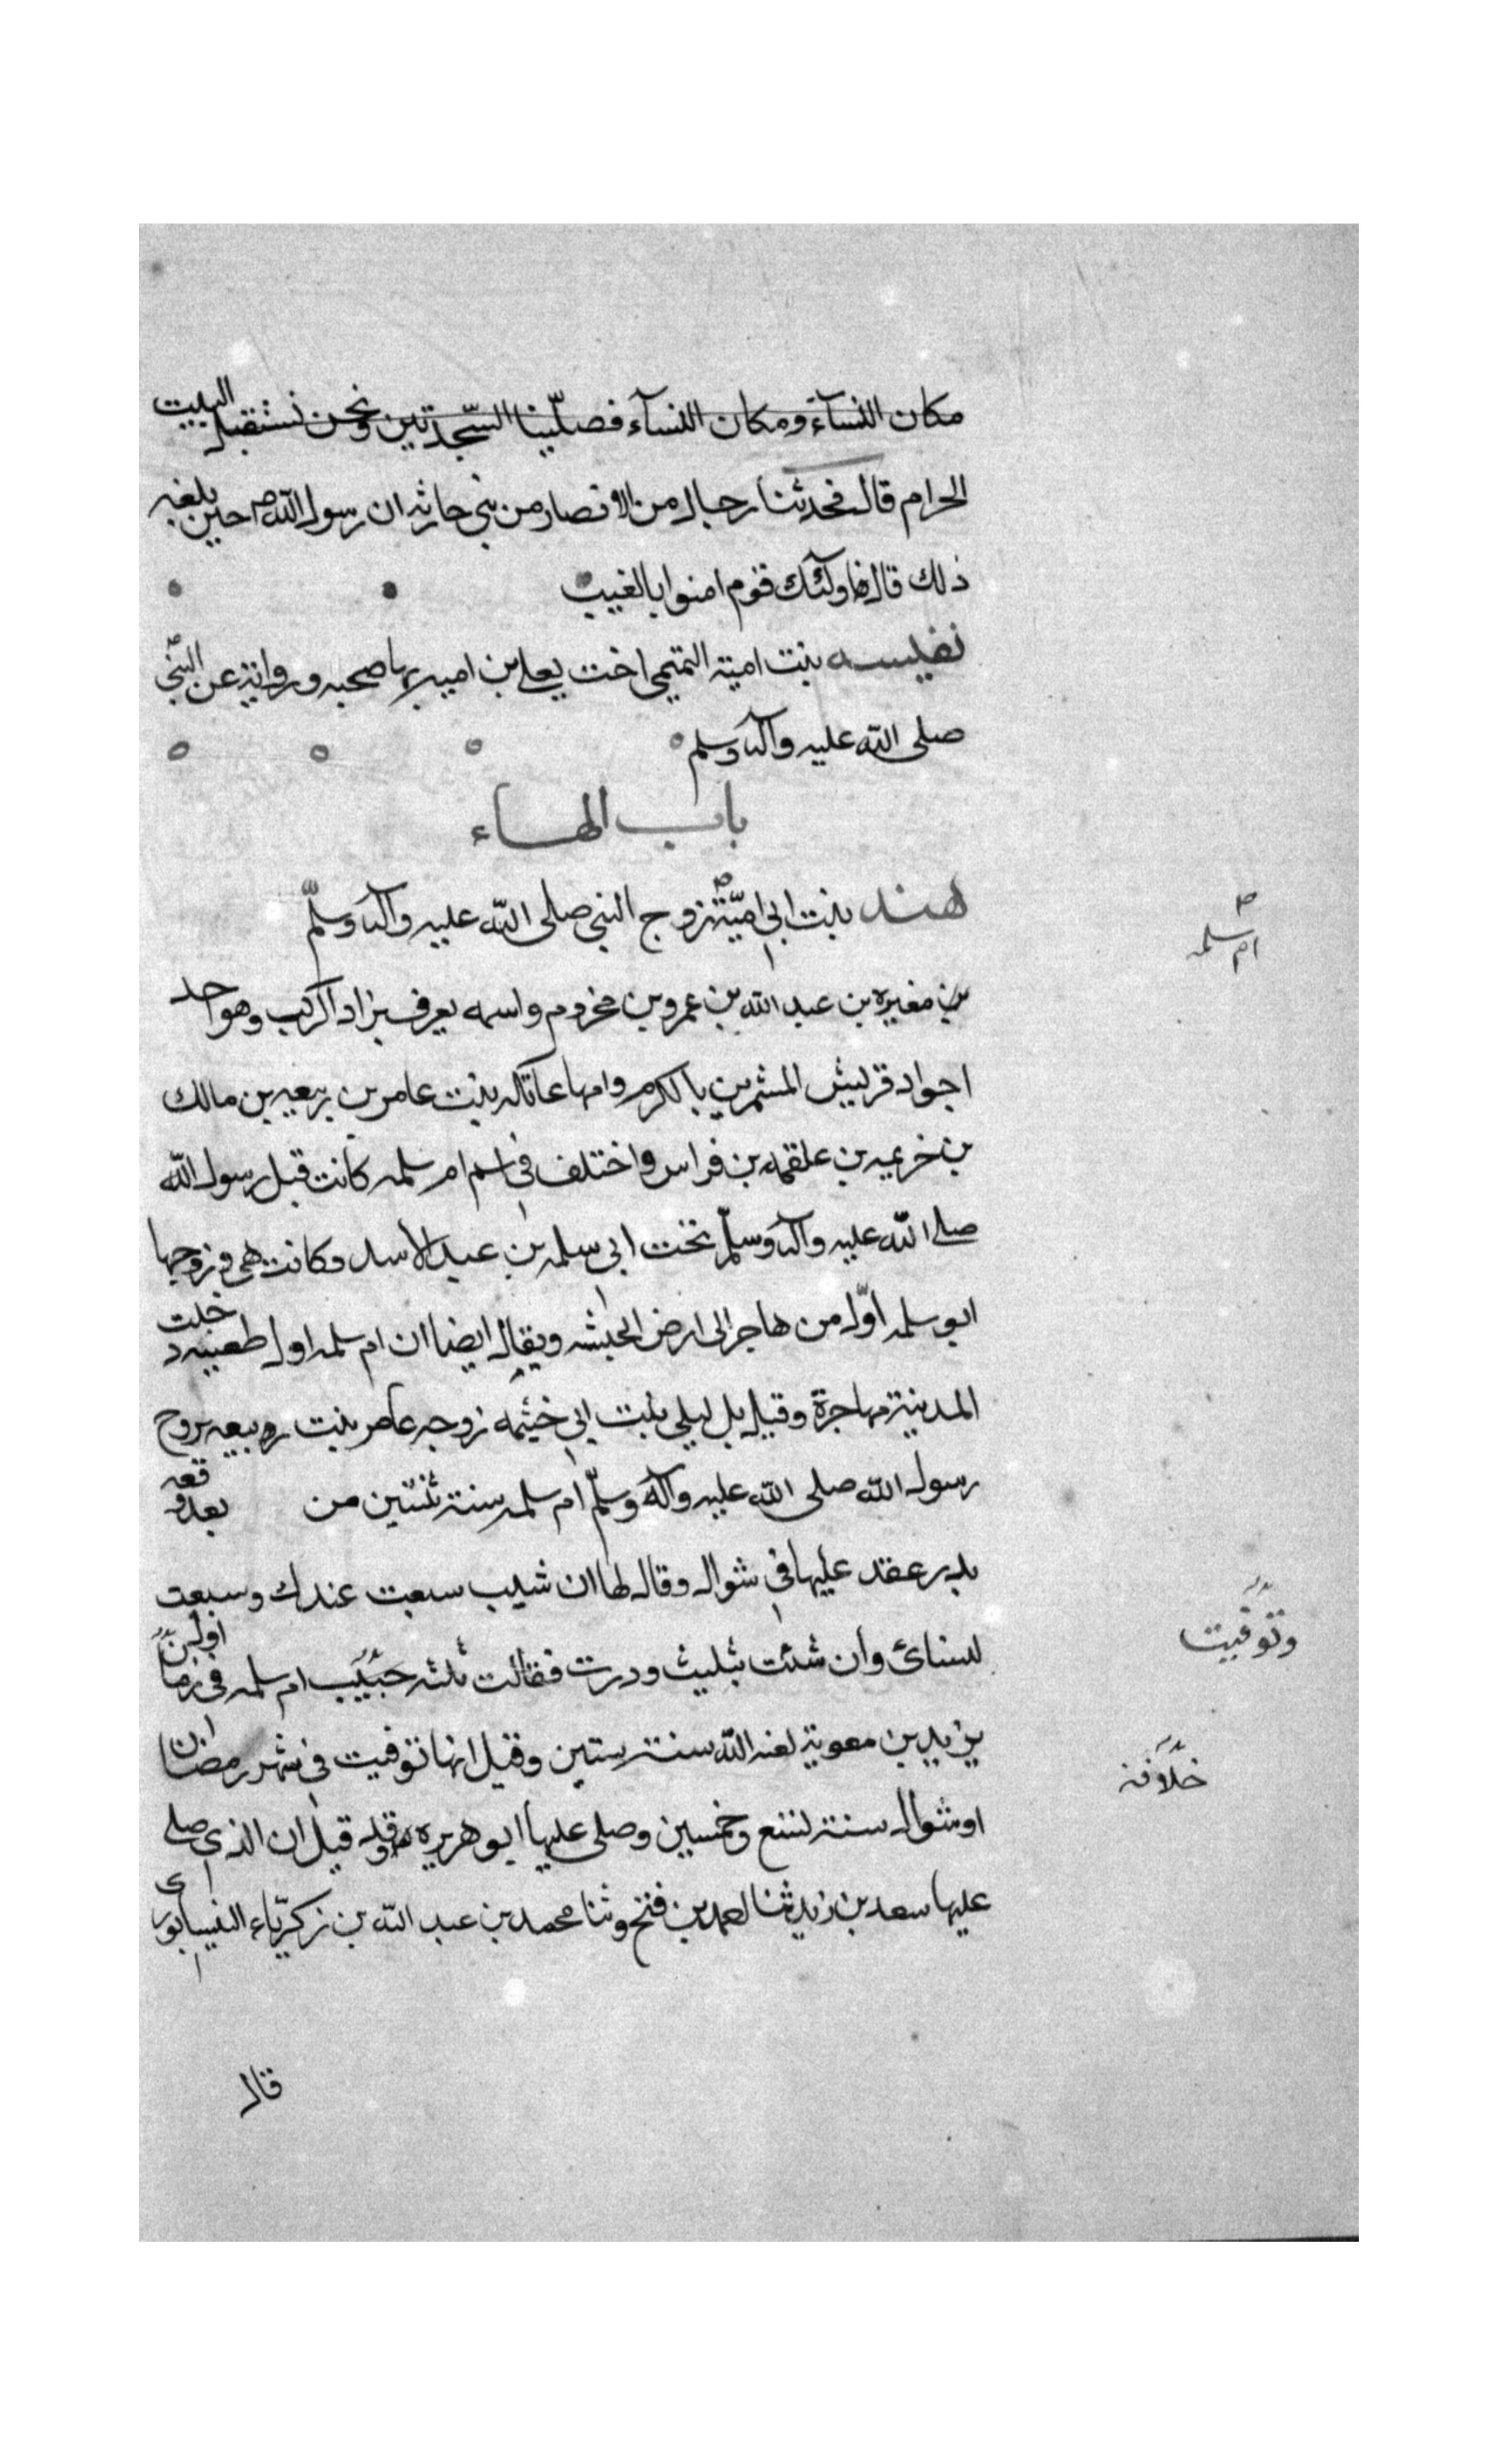 مكان النساء ومكان النسآء فصلّينا السّجدتين ونحن نستقبل البيت
الحرام قال فحدثنا رجال من الانصار من بنى حارثه ان رسول الله ص حين بلغه
ذلك قال فاولئك قوم امنوا بالغيب
نفيسه بنت امية التميمى اخت يعلى بن اميه لها صحبه ورواية عن النبى
صلى الله عليه وآله وسلم
باب الهاء
هند بنت ابى اميّة زوج النبى صلى الله عليه وآله وسلّم
ام سلمه
بن مغيره بن عبد الله بن عمرو بن مخزوم واسمه يعرف بزاد الركب وهو احد
اجواد قريش المشهرين بالكرم وامها عاتكه بنت عامر بن ربيعه بن مالك
بن خزيمه بن علقمه بن فراس واختلف فى اسم ام سلمه كانت قبل رسول الله
صلى الله عليه وآله وسلّم تحت ابى سلمه بن عبد الاسد وكانت هى وزوجها
ابو سلمه اوّل من هاجر الى ارض الحبشه ويقال ايضا ان ام سلمه اول ظعينه دخلت
المدينة مهاجرة وقيل بل ليلى بنت ابى خيثمه زوجه عامر بنت ربيعه تزوج
رسول الله صلى الله عليه وآله وسلّم ام سلمه سنة ثنتين من بعد وقعه
بدر عقد عليها فى شوال وقال لها ان شيت سبعت عندك وسبعت
لنسائى وان شئت ثلثت ودرت فقالت ثلث ام سلمه فى اول زمان
وتوفيت
يزيد بن معوية لعنه الله سنة ستين وقيل انها توفيت فى شهر رمضان
خلافه
او شوال سنة تسع وخمسين وصلى عليها ابو هريره وقد قيل ان الذى صلى
عليها سعد بن زيد ثنا احمد بن فتح وثنا محمد بن عبد الله بن زكريّاء النيسابورى
قال